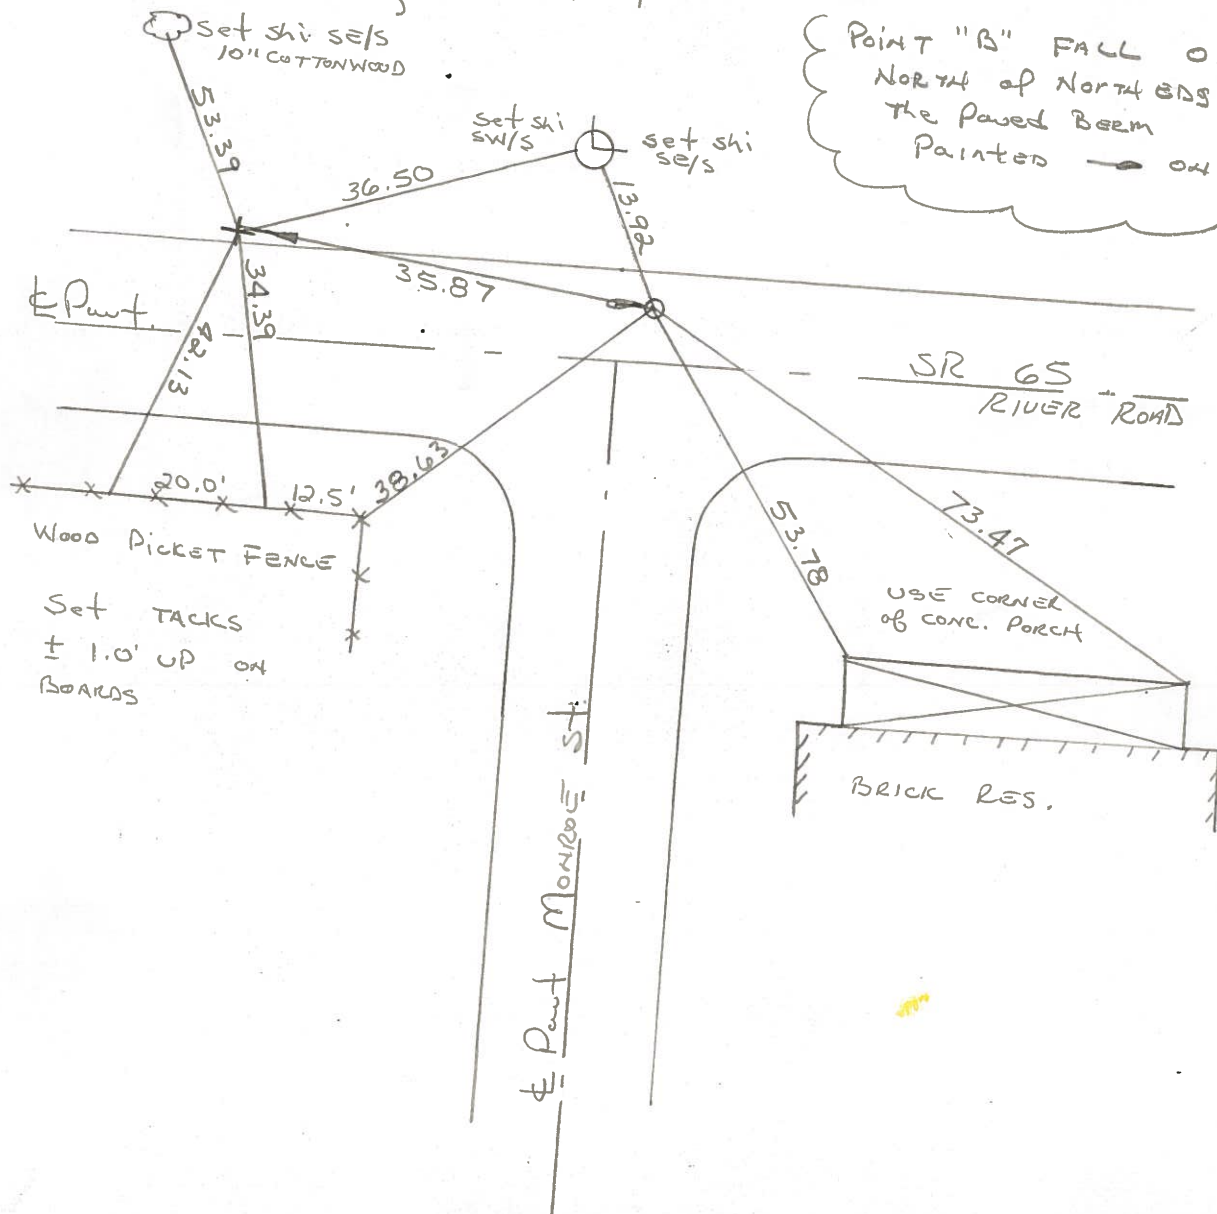 Set shi SE/S
10" COTTONWOOD
POINT "B" FALL O
NORTH of NORTH EDG
The Paved BERM
PAINTED ON
53.39
Set shi
SW/S
Set shi
SE/S
36.50
13.92
35.87
34.39
42.13
℄ Pavt.
SR 65
RIVER ROAD
20.0'
12.5'
38.63
53.78
73.47
WOOD PICKET FENCE
Set TACKS
± 1.0' UP ON
BOARDS
USE CORNER
of CONC. PORCH
BRICK RES.
℄ Pavt MONROE St